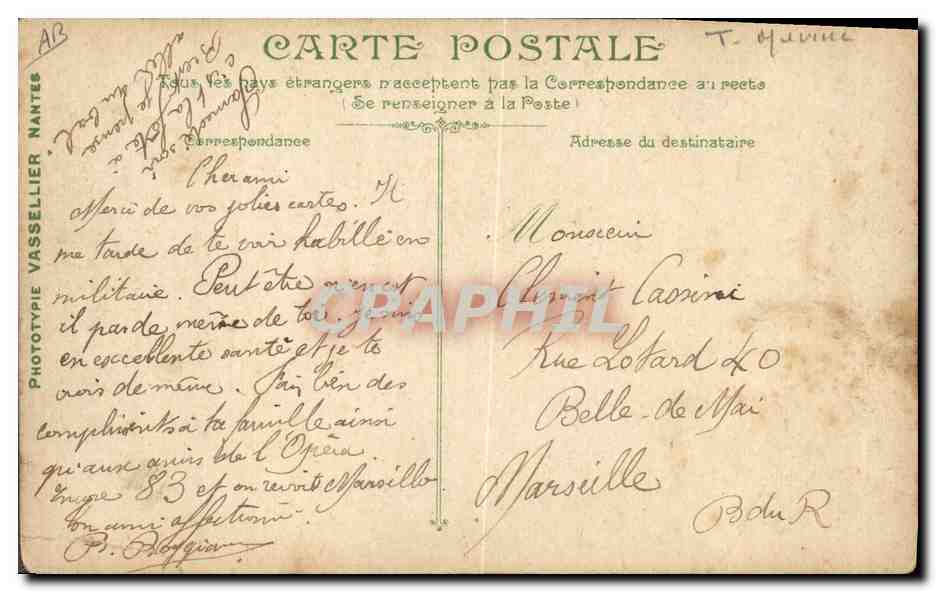 AB
T.
CARTE POSTALE
Tous les pays étrangers n'acceptent pas la Correspondance au recto
(Se renseigner à la Poste)
Correspondance
Adresse du destinataire
PHOTOTYPIE VASSELLIER NANTES
Cher ami
Merci de vos jolies cartes. Il
me tarde de te voir habillé en
militaire. Peut être n'en est
il pas de même de toi. Je suis
en excellente santé et je te
crois de même. Fais bien des
compliments à ta famille ainsi
qu'aux amis de l'Opéra.
Encore 83 et on revoit Marseille
Ton ami affectionné
B.
Samedi soir
c'est la
Bientôt je pense
aller au bal.
Monsieur
Clément Cassini
Rue Lotard 40
Belle-de Mai
Marseille
B du R
CPAPHIL